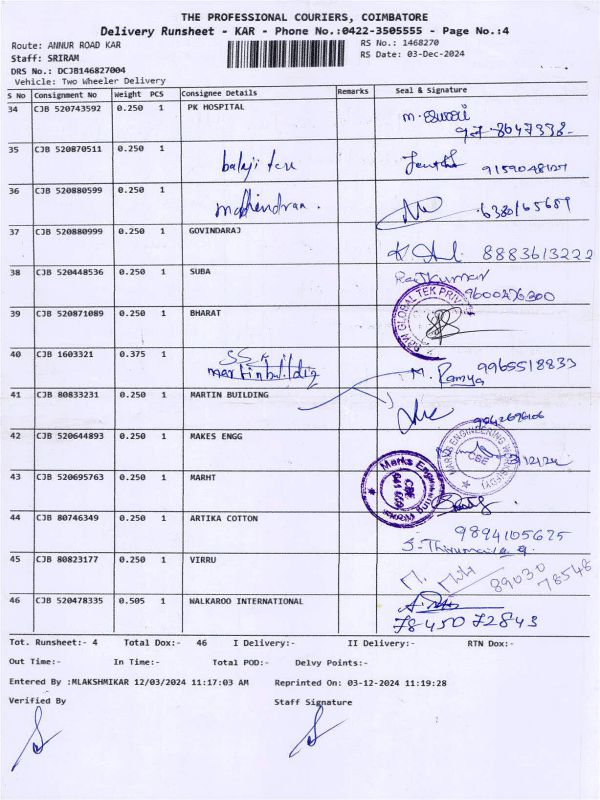 THE PROFESSIONAL COURIERS, COIMBATORE
Delivery Runsheet - KAR - Phone No.:0422-3505555 - Page No.:4
Route: ANNUR ROAD KAR
RS No.: 1468270
Staff: SRIRAM
RS Date: 03-Dec-2024
DRS No.: DCJB146827004
Vehicle: Two Wheeler Delivery
S No Consignment No Weight PCS Consignee Details Remarks Seal & Signature
34 CJB 520743592 0.250 1 PK HOSPITAL
35 CJB 520870511 0.250 1 balaji
36 CJB 520880599 0.250 1 mahindran. 6380165689
37 CJB 520880999 0.250 1 GOVINDARAJ 8883613222
38 CJB 520448536 0.250 1 SUBA Rajkumar
39 CJB 520871089 0.250 1 BHARAT GLOBAL TEK
40 CJB 1603321 0.375 1 SSK martin building M. Ramya 9965518833
41 CJB 80833231 0.250 1 MARTIN BUILDING
42 CJB 520644893 0.250 1 MAKES ENGG MARKS ENGINEERING CBE
43 CJB 520695763 0.250 1 MARHT Marks CBE
44 CJB 80746349 0.250 1 ARTIKA COTTON 9894105625
45 CJB 80823177 0.250 1 VIRRU 89030 78548
46 CJB 520478335 0.505 1 WALKAROO INTERNATIONAL 78450 72843
Tot. Runsheet:- 4 Total Dox:- 46 I Delivery:- II Delivery:- RTN Dox:-
Out Time:- In Time:- Total POD:- Delvy Points:-
Entered By :MLAKSHMIKAR 12/03/2024 11:17:03 AM Reprinted On: 03-12-2024 11:19:28
Verified By Staff Signature